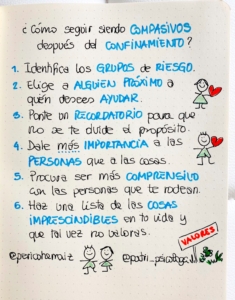 ¿Cómo seguir siendo COMPASIVOS
después del CONFINAMIENTO?
1. Identifica los GRUPOS de RIESGO.
2. Elige a ALGUIEN PRÓXIMO a
quién desees AYUDAR.
3. Ponte un RECORDATORIO para que
no se te olvide el propósito.
4. Dale más IMPORTANCIA a las
PERSONAS que a las cosas.
5. Procura ser más COMPRENSIVO
con las personas que te rodean.
6. Haz una lista de las COSAS
IMPRESCINDIBLES en tu vida y
que tal vez no valoras.
VALORES
@pericoherraiz
@patri_psicologa